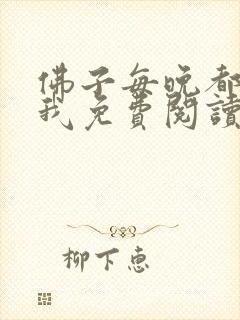 佛子每晚都
我免費閱讀
柳下惠